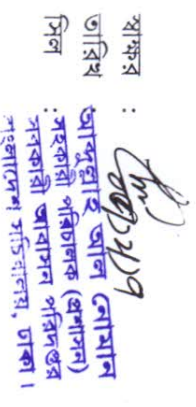 স্বাক্ষর :
তারিখ
সিল :
আব্দুল্লাহ আল নোমান
সহকারী পরিচালক (প্রশাসন)
সরকারী আবাসন পরিদপ্তর
বাংলাদেশ সচিবালয়, ঢাকা।